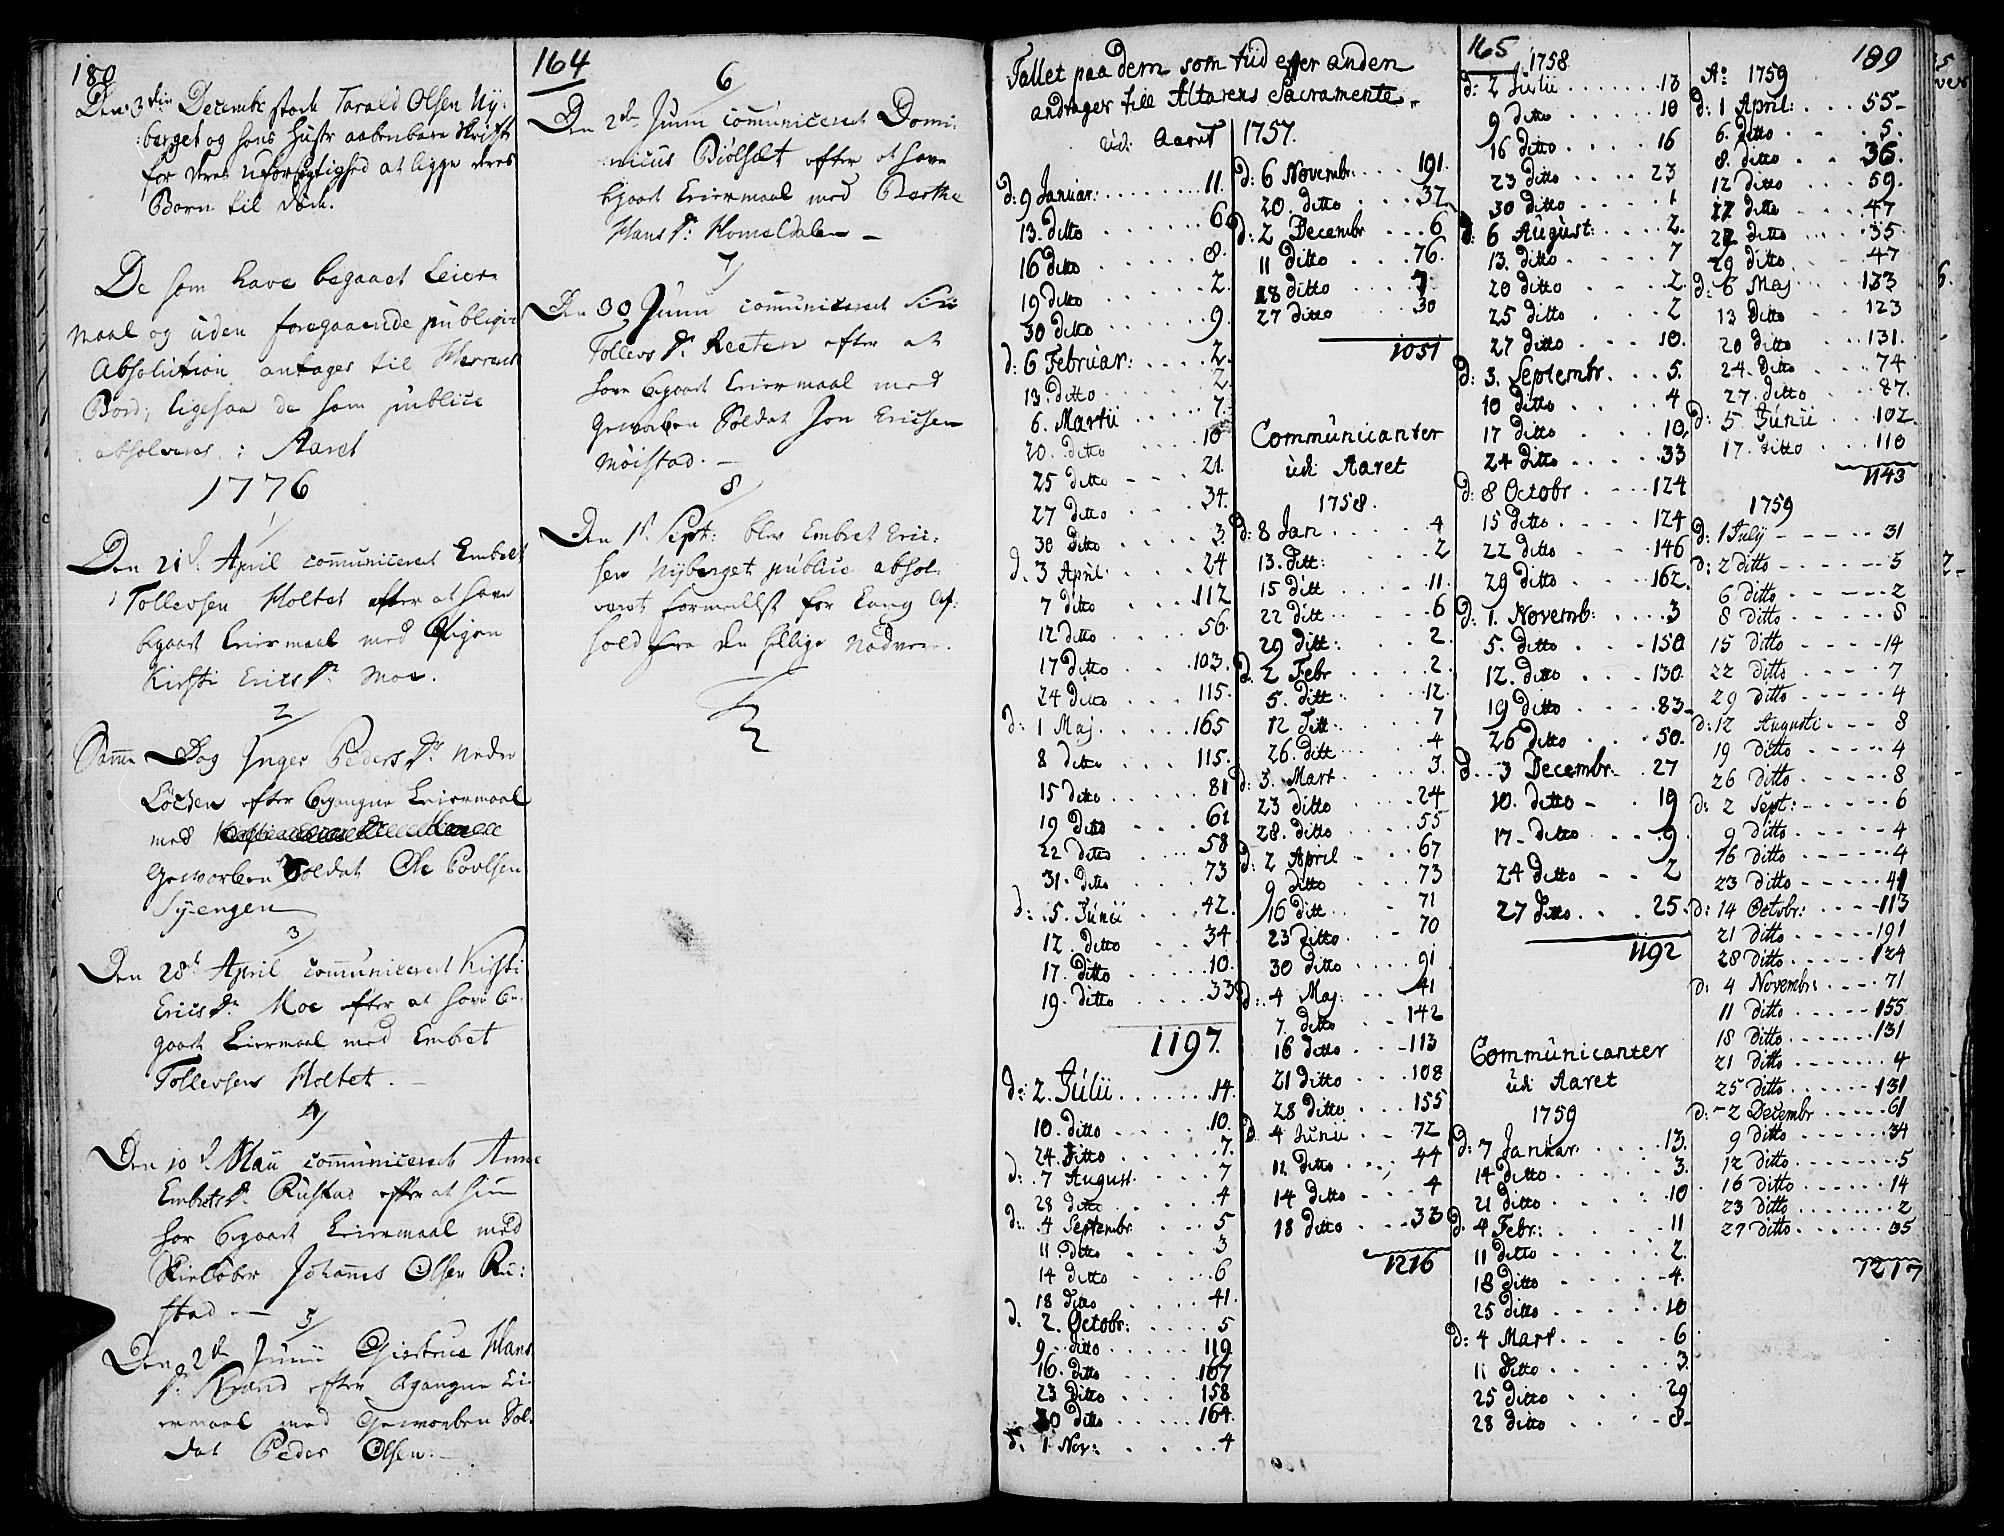 180
Den 3die Decembr stode Tarald Olsen Ny:
berget og hans Hustr aabenbare Skrifte
for deres uforsigtighed at ligge deres
Barn til døde.
De som have begaaet Leier-
maal og uden foregaaende publique
Absolution antages til Herrens
Bord, ligesaa de som publice
absolveres: Aaret
1776
1/
Den 21de April communiceret Embret
Tollevsen Holtet efter at have
begaaet Leiermaal med Pigen
Kirsti Erics Dr. Moe.
2/
Samme Dag Inger Peders Dr. nedre
Løcken efter begangne Leiermaal
med
Geworben Soldat Ole Povlsen
Syeengen
3/
Den 28de April communiceret Kirsti
Erics Dr. Moe efter at have be-
gaaet Leiermaal med Embret
Tollevsen Holtet.
4/
Den 10de Maii communiceret Anne
Embrets Dr. Rustad efter at hun
har begaaet Leiermaal med
Skieløber Johannes Olsen Ru:
stad.
5/
Den 2den Junii Giertrue Hans
Dr. Strand efter begangne Lei-
ermaal med Geworben Sol-
dat Peder Olsen.
164
6
Den 2den Junii communiceret Domi-
nicus Biølset efter at have
begaaet Leiermaal med Berthe
Hans Dr. Homeldalen
7/
Den 30 Junii communiceret Siri
Tollevs Dr. Reeten efter at
have begaaet Leiermaal med
Geworben Soldat Jon Ericsen
Moistad.
8/
Den 1ste Sept: blev Embret Eric:
sen Nyberget publice absol-
veret formedelst for lang Af:
hold fra den hellige Nadvere.
Tallet paa dem som tiid efter anden
andrager till Altarens Sacramente.
udi Aaret 1757.
d: 9 Januar: 11.
13. Ditto 6
16 ditto 8.
19 ditto 2
30 ditto 9
d: 6 Februar: 2.
13. Ditto 2
6. Martii 7.
20. ditto 10
25 ditto 21.
27 ditto 34.
30 ditto 3
d. 3 April 24
7 ditto 112
12 ditto 56
17 ditto 103.
24 ditto 115.
d: 1 Maj. 165
8 ditto 115.
15 ditto 81
19 ditto 61
22 ditto 58
31. ditto 73
d: 5. Junii 42.
12. ditto 34
17. ditto 10.
19. ditto 33
1197.
d: 2. Julii 14.
10. ditto 10.
24. ditto 7.
d: 7 August. 7
28 ditto 4
d: 4 Septembr 5
11. ditto 3
14 ditto 6
18 ditto 41.
d: 2. Octobr: 5
9. ditto 119
16. ditto 167
23 ditto 158
30 ditto 164.
d. 1. Nov: 4
d: 6 Novembr. 191.
20. ditto 37
d: 2 Decembr 6
11 ditto 76.
18 ditto 7.
27 ditto 30
1051
Communicanter
udi Aaret
1758.
d: 8 Jan 4
13. ditt: 2
15 ditt 11.
22 ditt 6
29 ditt: 2.
d. 2 Febr 2.
5. ditt: 12.
12 ditt: 7
26. ditt 4
d: 3. Mart. 3.
23 ditto 24
28. ditto 55
d: 2 April 67
9 ditto 73
16 ditt 71
23 ditto 70
30 ditto 91
d: 4 Maj. 41
7. ditto 142
16 ditto 113
21 ditto 108
28 ditto 155
d. 4 Junii 72
12 ditto 44
14 ditto 4
18 ditto 33
1216
165
1758
d: 2 Julii 13
9 ditto 10
16 ditto 16
23 ditto 23
30 ditto 1
d: 6 August: 2.
13. ditto 7
20 ditto 2
25 ditto 2
27 ditto 10.
d: 3. Septembr. 5.
10 ditto 4
17 ditto 10,
24 ditto 33
d: 8 Octobr 124
15 ditto 124
22 ditto 146
29 ditto 162.
d: 1. Novemb: 3
5. ditto 150
12. ditto 130
19 ditto 83
26 ditto 50.
d. 3 Decembr. 27
10. ditto 19
17 ditto 9.
24 ditto 2
27 ditto 25.
1192
Communicanter
udi Aaret
1759
d: 7 Januar. 13.
14 ditto 3.
21 ditto 10
d. 4 Febr: 11
11 ditto 2.
18 ditto 4.
25 ditto 10
d: 4 Mart. 6
11 ditto 3
25 ditto 29
28 ditto 8
189
Ao 1759
d: 1 April: 55
6. ditto 5.
8. ditto 36.
12 ditto 59.
ditto 47
22 ditto 35.
29 ditto 47
d: 6 Maj 133
13 ditto 123
20 ditto 131.
24. ditto 74
27. ditto 87.
d: 5 Junii 102.
17. ditto 110
1143
1759
d: 1 July 31
d: 2 ditto 5
6 ditto 2
8 ditto 8
15 ditto 14
22 ditto 7
29 ditto 4
d: 12 Augusti 8
19 ditto 4
26 ditto 8
d: 2 Sept: 6
9 ditto 4
16 ditto 4
23 ditto 41
d: 14 Octobr: 113
21 ditto 191
28 ditto 124
d: 4 Novembr: 71
11 ditto 155
18 ditto 131
21 ditto 4
25 ditto 131
d: 2 Decembr 61
9 ditto 34
12 ditto 5
16 ditto 14
23 ditto 2
27 ditto 35
1217